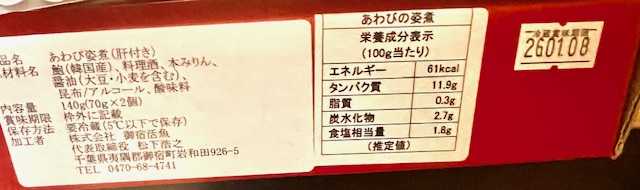 品名 あわび姿煮(肝付き)
原材料名 鮑(韓国産)、料理酒、本みりん、
醤油(大豆・小麦を含む)、
昆布/アルコール、酸味料
内容量 140g(70g×2個)
賞味期限 枠外に記載
保存方法 要冷蔵(5℃以下で保存)
加工者 株式会社 御宿活魚
代表取締役 松下浩之
千葉県夷隅郡御宿町岩和田926-5
TEL 0470-68-4741
あわびの姿煮
栄養成分表示
(100g当たり)
エネルギー 61kcal
タンパク質 11.9g
脂質 0.3g
炭水化物 2.7g
食塩相当量 1.8g
(推定値)
冷蔵賞味期限
260108